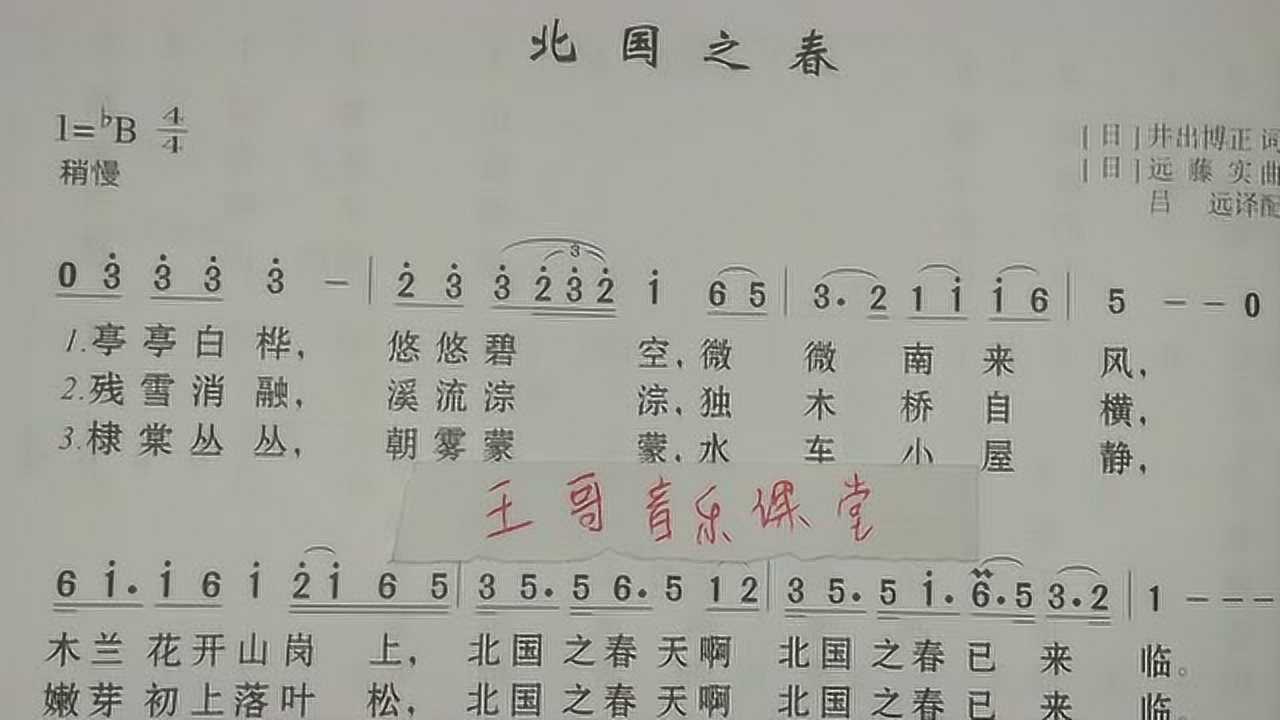 北国之春
1=♭B 4/4
[日]井出博正 词
稍慢
[日]远藤实 曲
吕远译配
0 3̇ 3̇ 3̇ 3̇ － | 2̇ 3̇ 3̇ 2̇ 3̇ 2̇ 1̇ 6 5 | 3. 2 1 1̇ 1̇ 6 | 5 － － 0
1.亭亭白桦，悠悠碧空，微微南来风，
2.残雪消融，溪流淙淙，独木桥自横，
3.棣棠丛丛，朝雾蒙蒙，水车小屋静，
王哥音乐课堂
6 1̇. 1̇ 6 1̇ 2̇ 1̇ 6 5 | 3 5. 5 6. 5 1 2 | 3 5. 5 1̇. 6. 5 3. 2 | 1 － － －
木兰花开山岗上，北国之春天啊北国之春已来临。
嫩芽初上落叶松，北国之春天啊北国之春已来临。